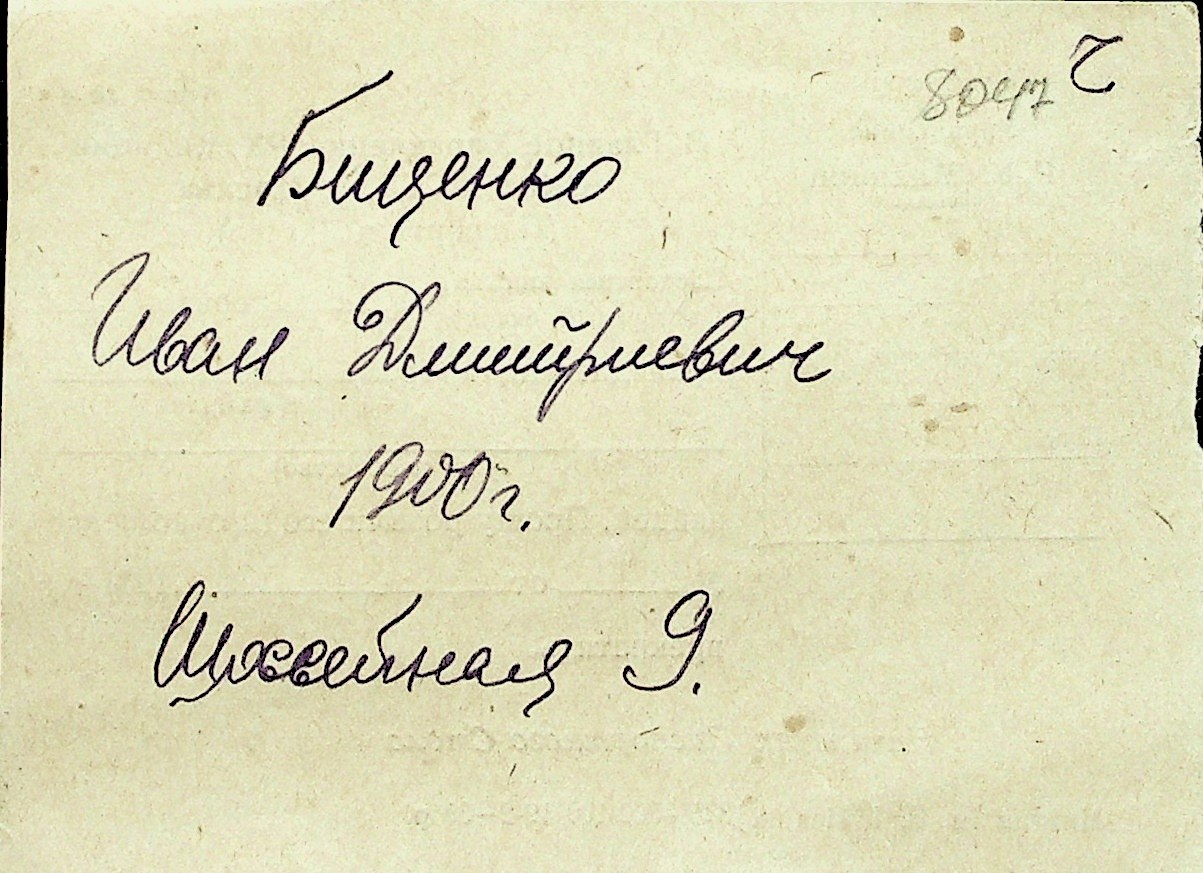 8047 г
Бищенко
Иван Дмитриевич
1900 г.
Шоссейная 9.